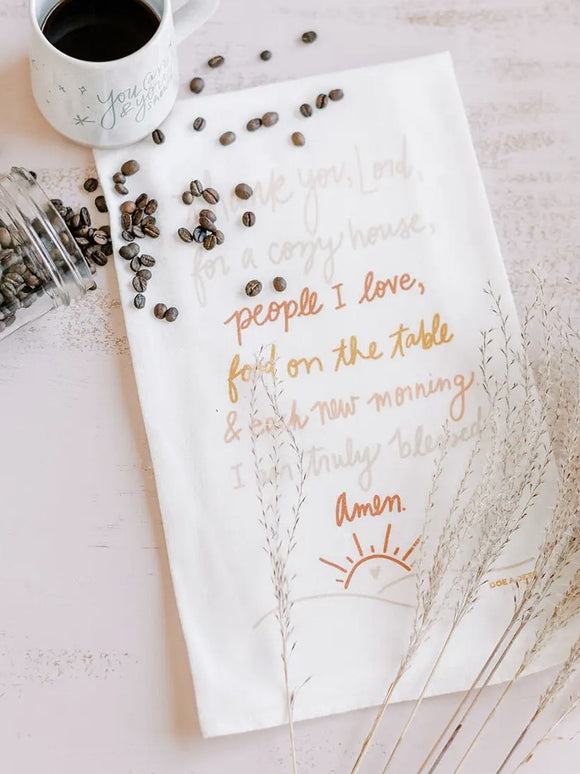 You are
& you
Thank you, Lord,
for a cozy house,
people I love,
food on the table
& each new morning
I am truly blessed
Amen.